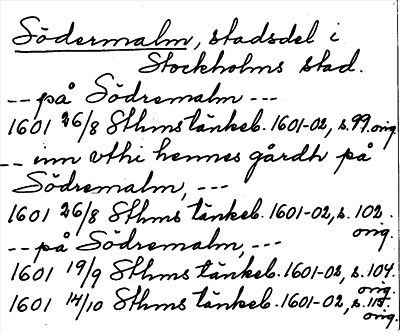 Södermalm, stadsdel i
Stockholms stad.
-- på Södremalm ---
1601 26/8 Sthms tänkeb. 1601-02, s. 99. orig.
-- inn vthi hennes gårdh på
Södremalm, ---
1601 26/8 Sthms tänkeb. 1601-02, s. 102.
orig.
-- på Södremalm, ---
1601 19/9 Sthms tänkeb. 1601-02, s. 104.
orig.
1601 14/10 Sthms tänkeb. 1601-02, s.
orig.